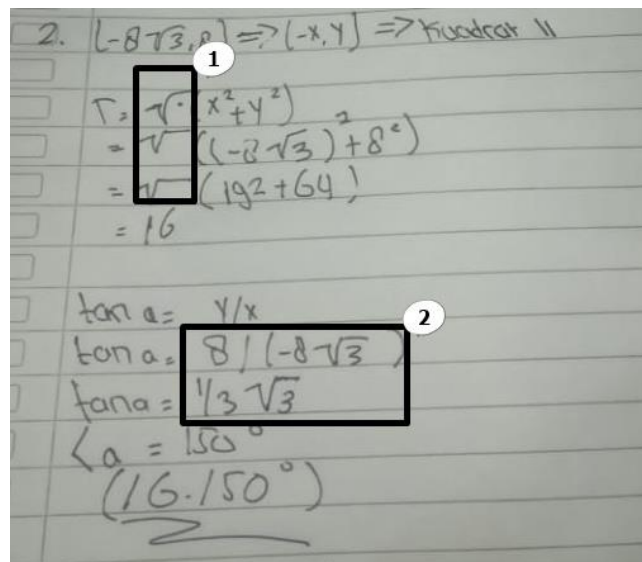 2. (-8√3,8) => (-x,y) => Kuadrat II
1
r = √(x²+y²)
= √((-8√3)²+8²)
= √(192+64)
= 16
tan a = y/x
2
tan a = 8/(-8√3)
tan a = 1/3√3
<a = 150°
(16.150°)